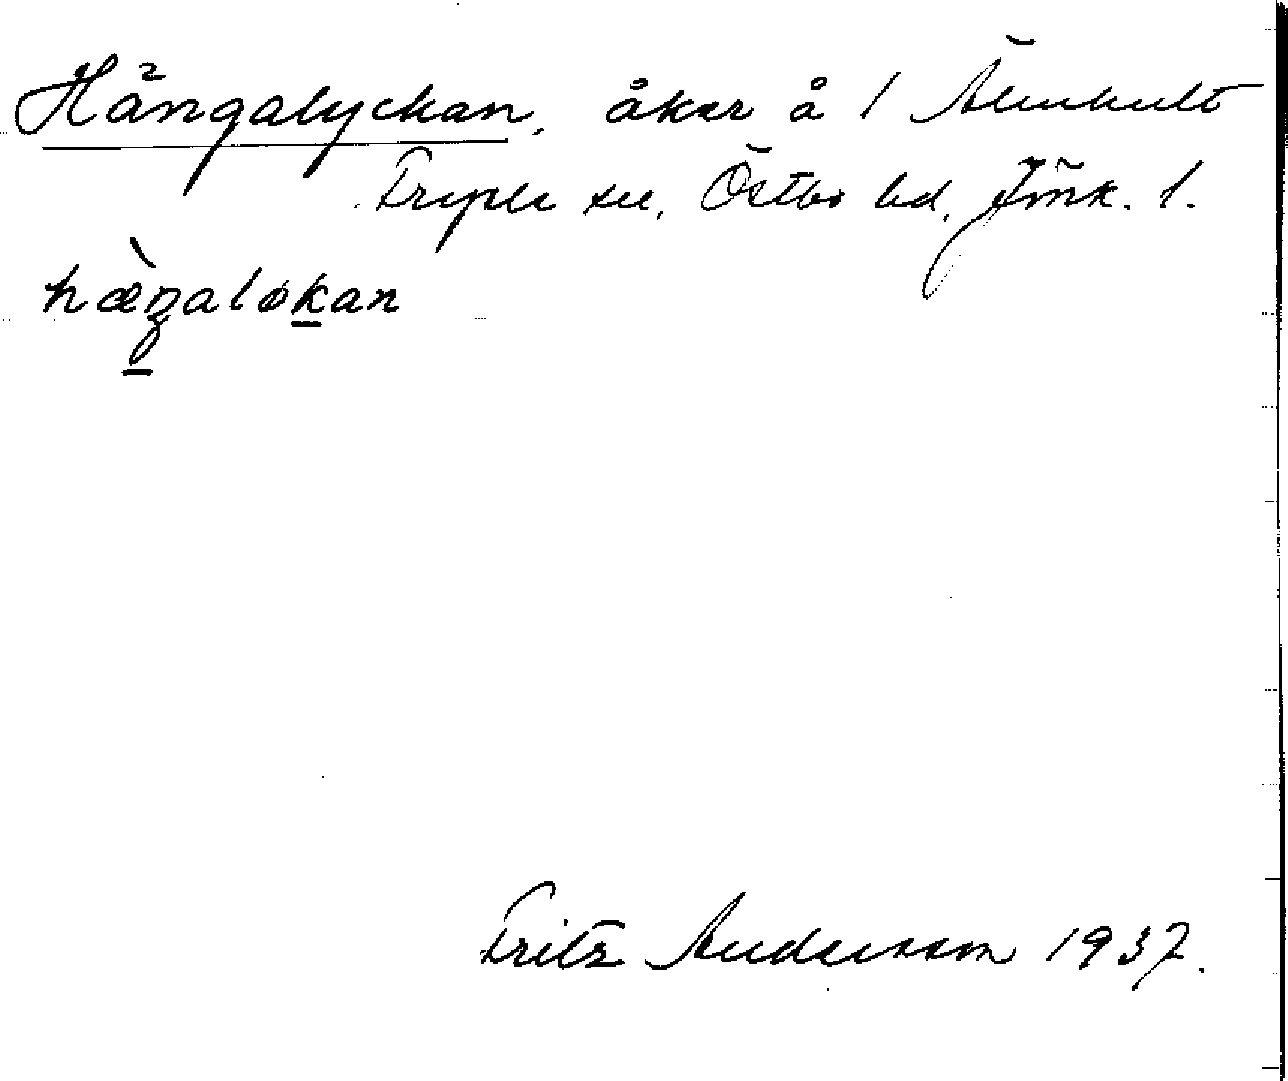 Hängalyckan, åker å 1 Älmhult
Fryele sn, Östbo hd, Jönk. l.
hæ̀ŋaløkan
Fritz Andersson 1937.